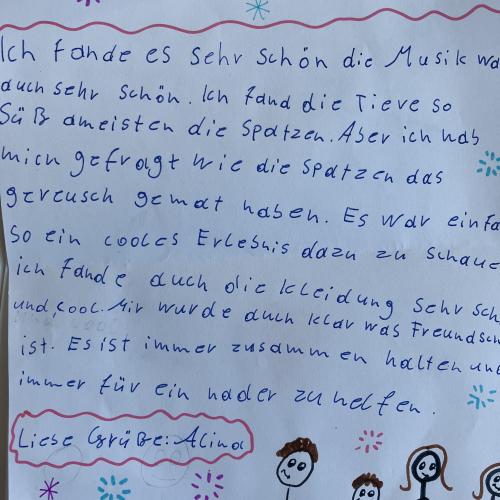 Ich fande es sehr schön die Musik wa
auch sehr schön. Ich fand die Tieve so
Süß ameisten die Spatzen. Aber ich hab
mich gefragt wie die Spatzen das
gereusch gemat haben. Es war einfa
so ein cooles Erlebnis dazu zu schaue
ich fande auch die kleidung sehr sch
und, cool. Mir wurde auch klar was Freundsch
ist. Es ist immer zusammen halten und
immer für ein nader zu helfen.
Liebe Grüße: Alina